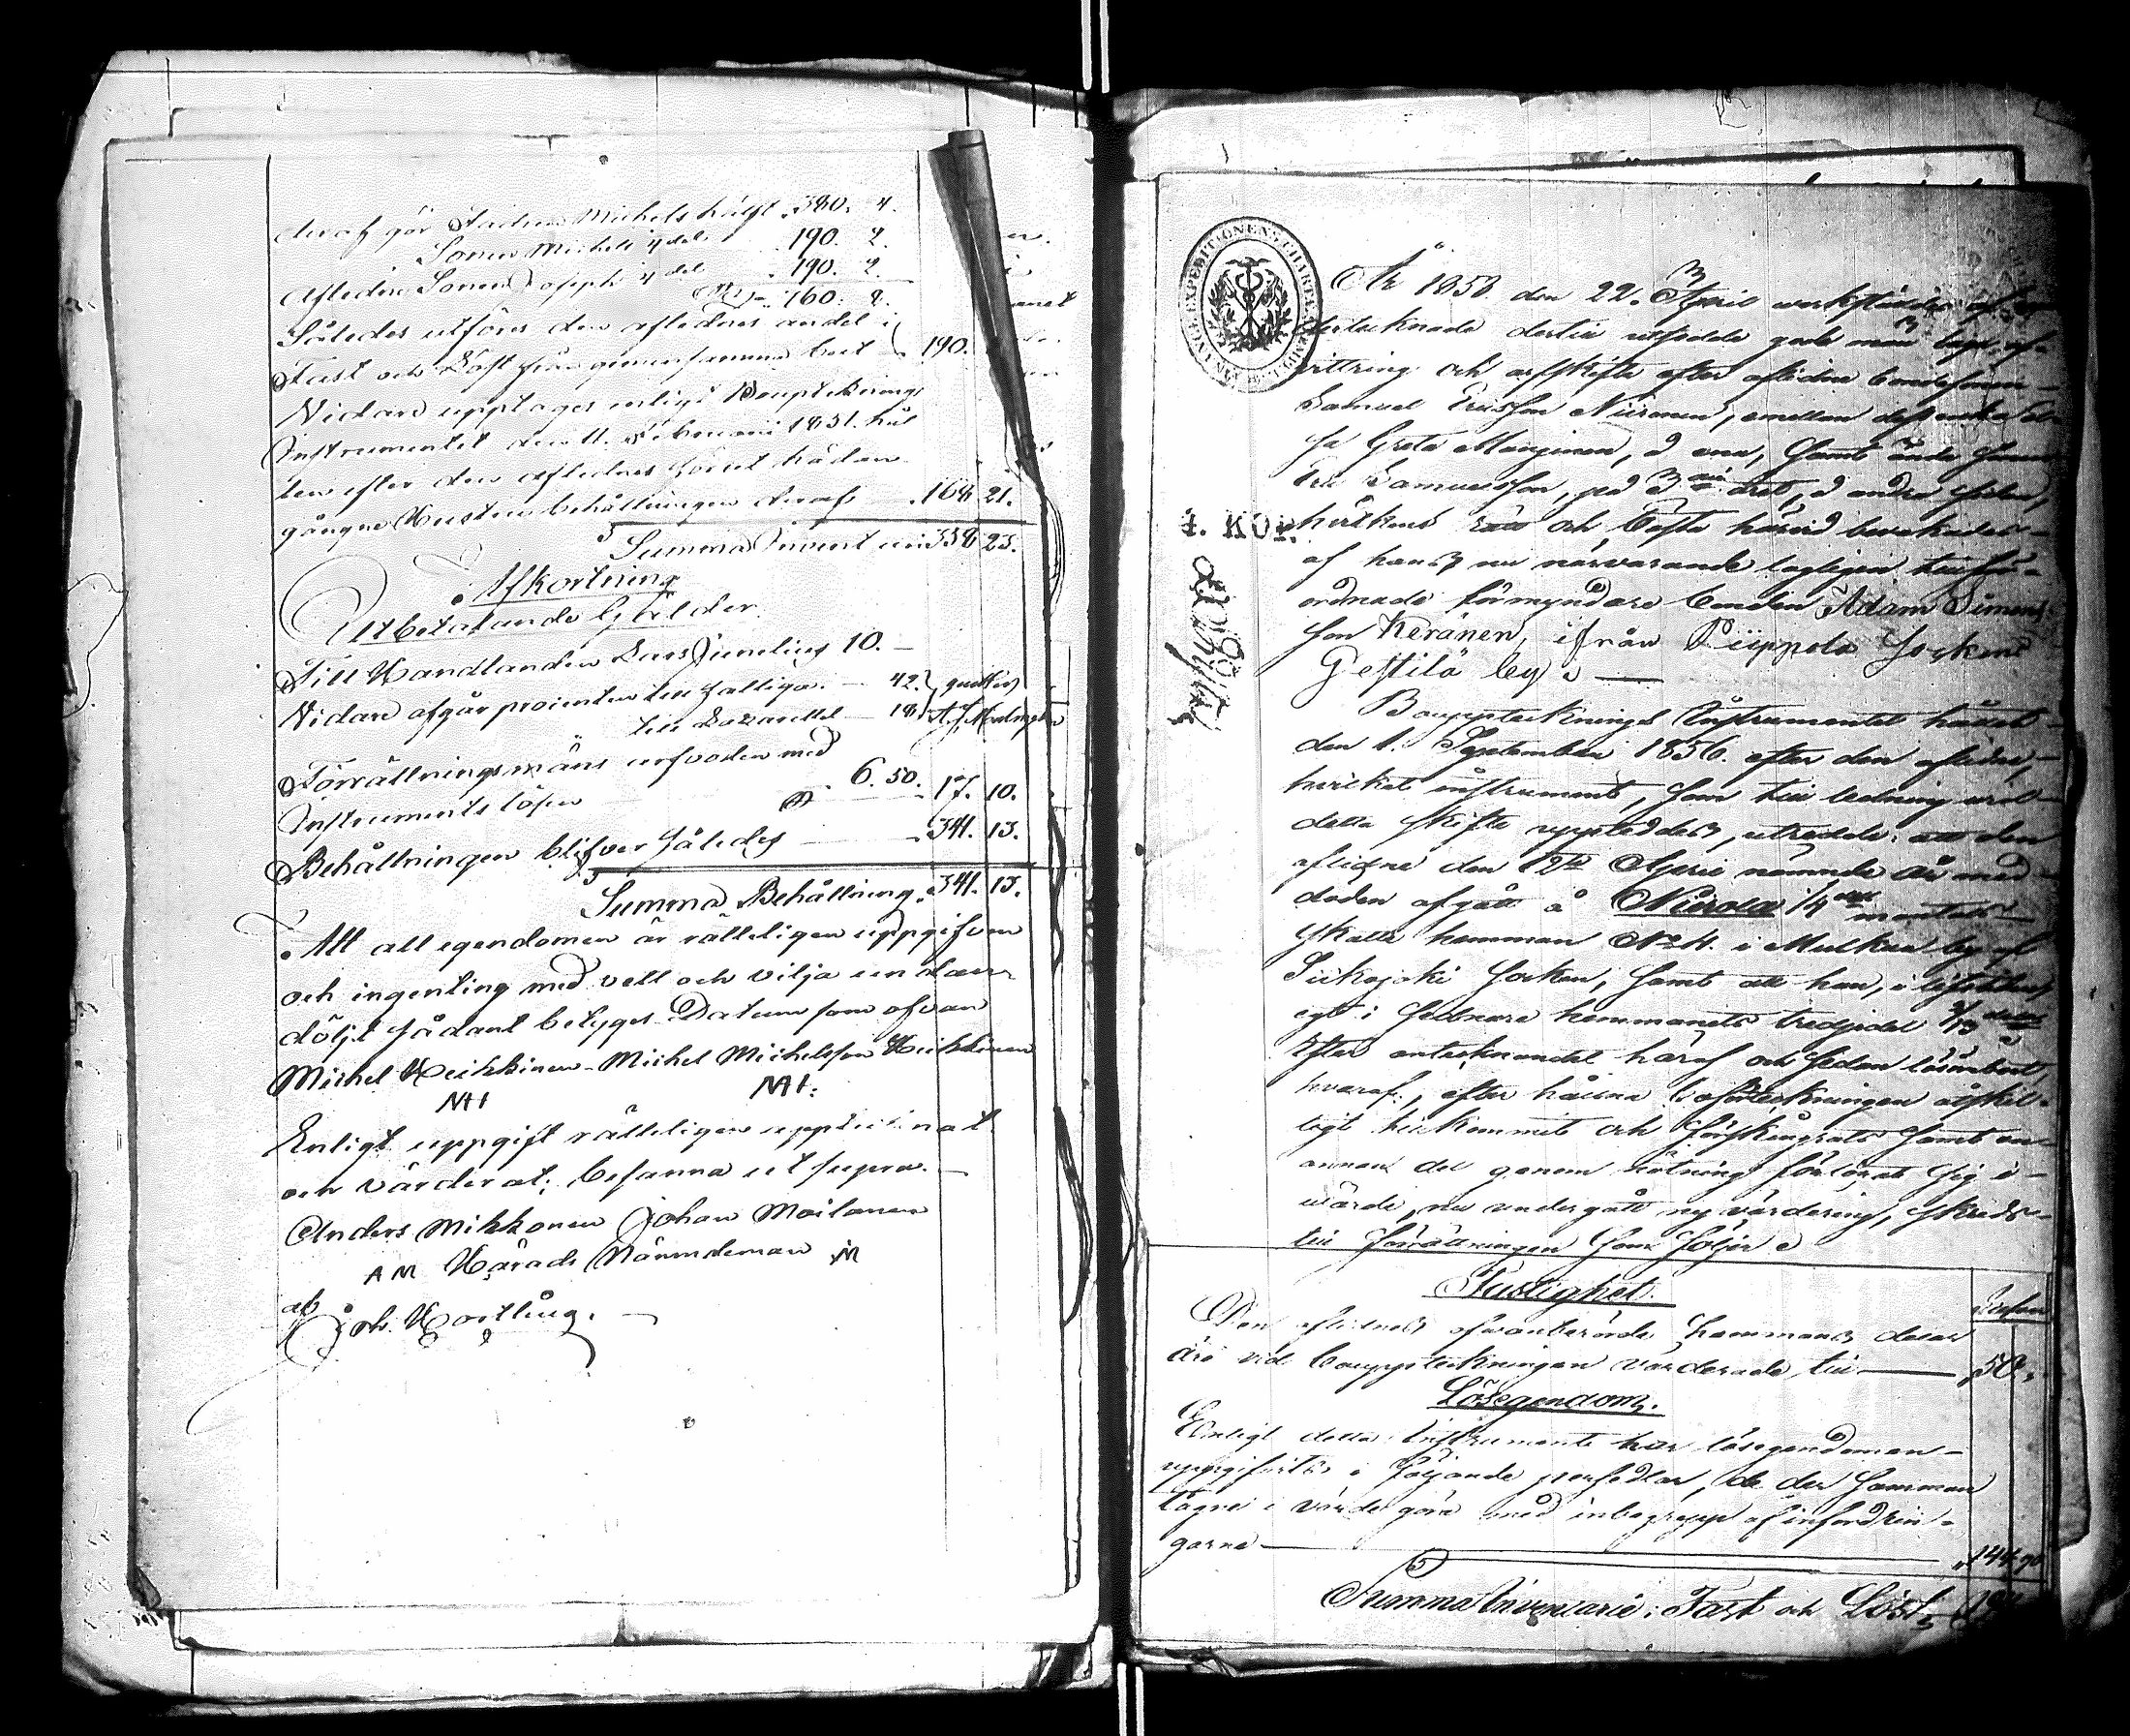 deraf gör Fadren Michels hälft 380. 4.
Sonen Michels ¼ del 190. 2.
Aflidne Sonen Josephs ¼ del 190. 2.
760. 8.
Således utföres den aflednes andel i
Fast och Löst från gemensamma boet 190.
Vidare upptages enligt Bouptecknings
Instrumentet den 11. Februari 1851. hål
len efter den aflednes förut hädan
gångne Hustru behållningen deraf 168 21.
Summa Inventarii 358 23.
Afkortning
Utbetalande Gälder
Till Handlanden Lars Junelius 10.
Vidare afgår procenten till fattiga 42. quitteras
till Lazarettet 18.
Förrättningsmäns arfvoden med
Instruments lösen 6. 50. 17. 10.
Behållningen blifver således 341. 13.
Summa Behållning 341. 13.
Att all egendomen är rätteligen uppgifven
och ingenting med vett och vilja undan
döljt sådant betyges Datum som ofvan
Michel Heikkinen Michel Michelsson Heikkinen
Enligt uppgift rätteligen upptecknat
och värderat; besanna ut supra.
Anders Mikkonen Johan Moilanen
AM Härads Nämndeman
Joh. Hortling.
År 1858 den 22. April werkställdes af un-
dertecknade dertill utsedde gode män laga af-
vittring och arfskifte efter aflidne bondesonen
Samuel Ericsson Niiranen, emellan dess enka
Greta, å ena, samt sonen
Eric Samuelsson, på 3die året, å andra sidan,
hvilkens rätt och bästa härvid bevakades
af hans nu närvarande lagligen tillför-
ordnade förmyndare bonden Adam Simons
son Keränen, ifrån Piippola Socken
Gestilä by.
4. KOP.
Bouppteknings Instrumentet hållet
den 1. September 1856. efter den aflidne,
hvilket instrument, som till ledning vid
detta skifte uppteddes, utredde: att den
aflidne den 12te April nämnde år med
döden afgått å Niirola ¼ mantals
skatte hemman No 4. i Mulkua by af
Siikajoki Socken, samt att han, i lifstiden
egt i sednare hemmanets tredjedel
Efter antecknandet häraf och sedan lösöreboet,
hvaraf, efter hållna bouppteckningen åtskil-
ligt tillkommit och förskingrats samt en
annan del genom nötning förlorat sig i
värde, nu undergått ny värdering, skreds
till förrättningen som följer
Fastighet.
Den aflidnes ofvanberörde hemmans delar
äro vid bouppteckningen värderade till 50
Lösegendom.
Enligt detta Instrument har lösegendomen
uppgifvits i följande persedlar, de der samman
tagne i värde göra med inbegrepp af infordrin-
garne 144.90
Summa Inventarii i Fast och Löst